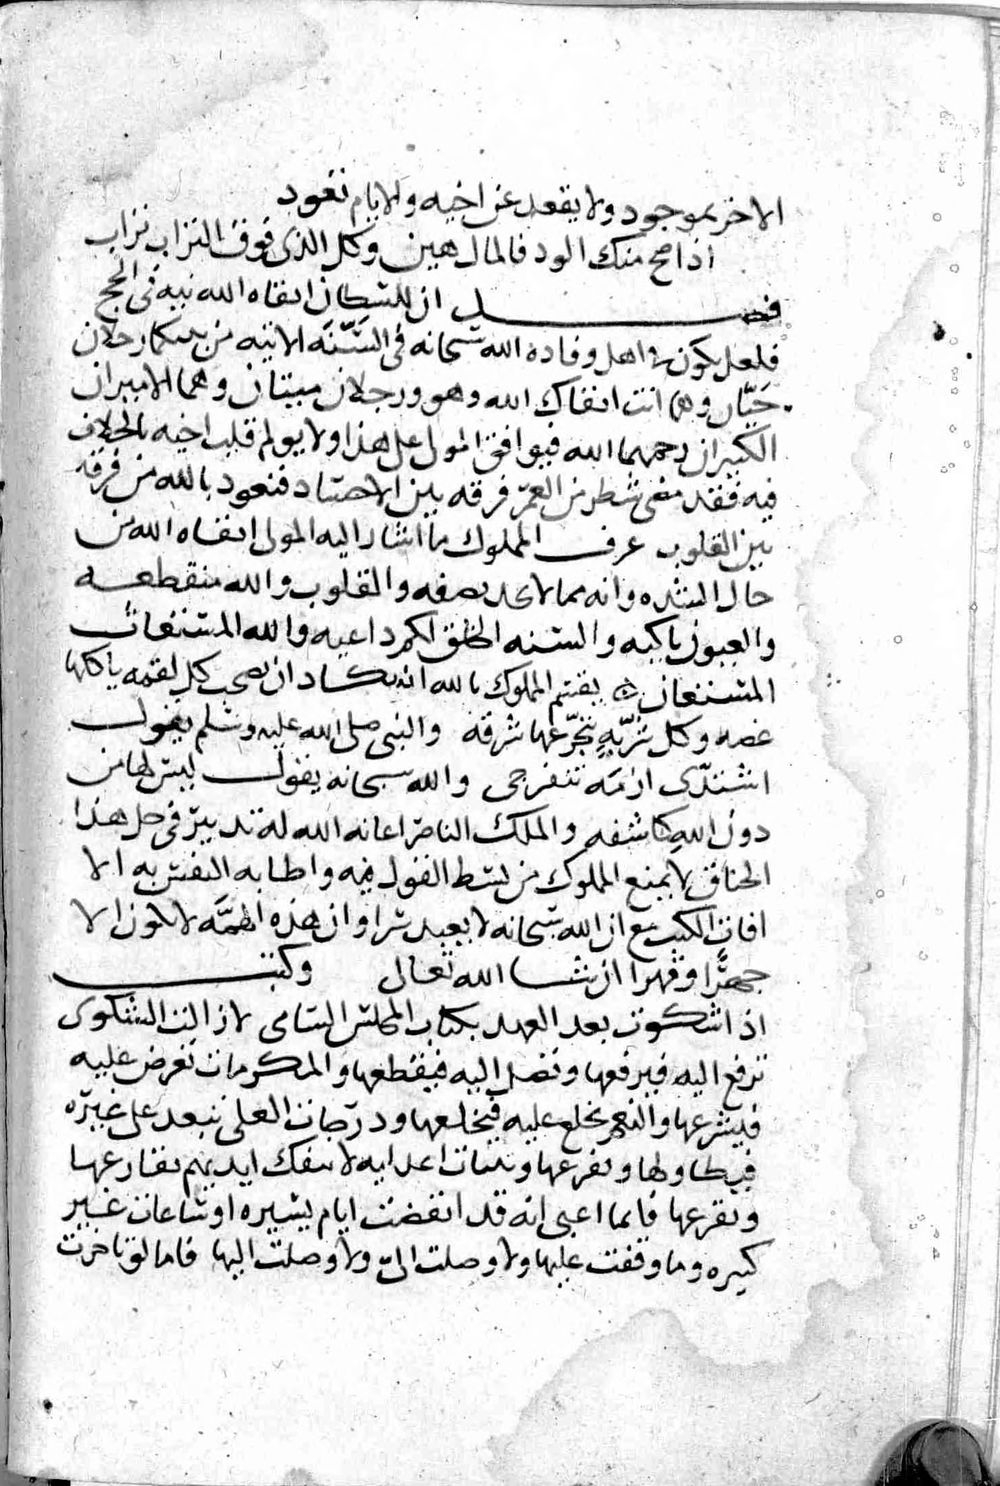 الاخر بموجود ولا يقعد عن اخيه والايام تعود
اذا صح منك الود فالمال هين وكل الذى فوق التراب تراب
فصل ان للسلطان ابقاه الله نيه فى الحج
فلعل يكون اهل وفاده الله سبحانه فى السَّنَه الاتيه من بيتكما رجلان
حيّان وهما انت ابقاك الله وهو ورجلان ميتان وهما الاميران
الكبيران رحمهما الله فيوافق المولى على هذا ولا يولم قلب اخيه بالخلاف
فيه فقد مضى شطر من العمر فرقه بين الاجساد فنعوذ بالله من فرقه
بين القلوب عرف المملوك ما اشار اليه المولى ابقاه الله من
حال الشده وانه مما لا يحد بصفه والقلوب والله منقطعه
والعيون باكيه والسنه الخلق لكم داعيه والله المستعان
المستعان يقسم المملوك بالله انه يكاد ان يصحب كل لقمه ياكلها
غصه وكل شربه يتجرعها شرقه والنبى صلى الله عليه وسلم يقول
اشتدّى ازمَه تنفرجى والله سبحانه يقول ليس لها من
دون الله كاشفه والملك الناصر اعانه الله له تدبير فى حل هذا
الخناق لا يمنع المملوك من بسط القول فيه واطابه النفس به الا
افات الكتب مع ان الله سبحانه لا يعيد شرا وان هذه الهمَّه لا تكون الا
جهرًا وقهرا ان شا الله تعالى وكتب
اذا شكوت بعد العهد بكتاب المجلس السامى لا زالت الشكوى
ترفع اليه فيرفعها وتصل اليه فيقطعها والمكرمات تعرض عليه
فيشرعها والنعم تخلع عليه فيخلعها ودرجات العلى تبعد على غيره
فيطاولها ويفرعها ونكبات اعدايه لا تنفك ايديهم تقارعها
وتقرعها فانما اعنى انه قد انقضت ايام يسيره او ساعات غير
كبيره وما وقفت عليها ولا وصلت الىّ ولا وصلت اليها فاما لو تاخرت